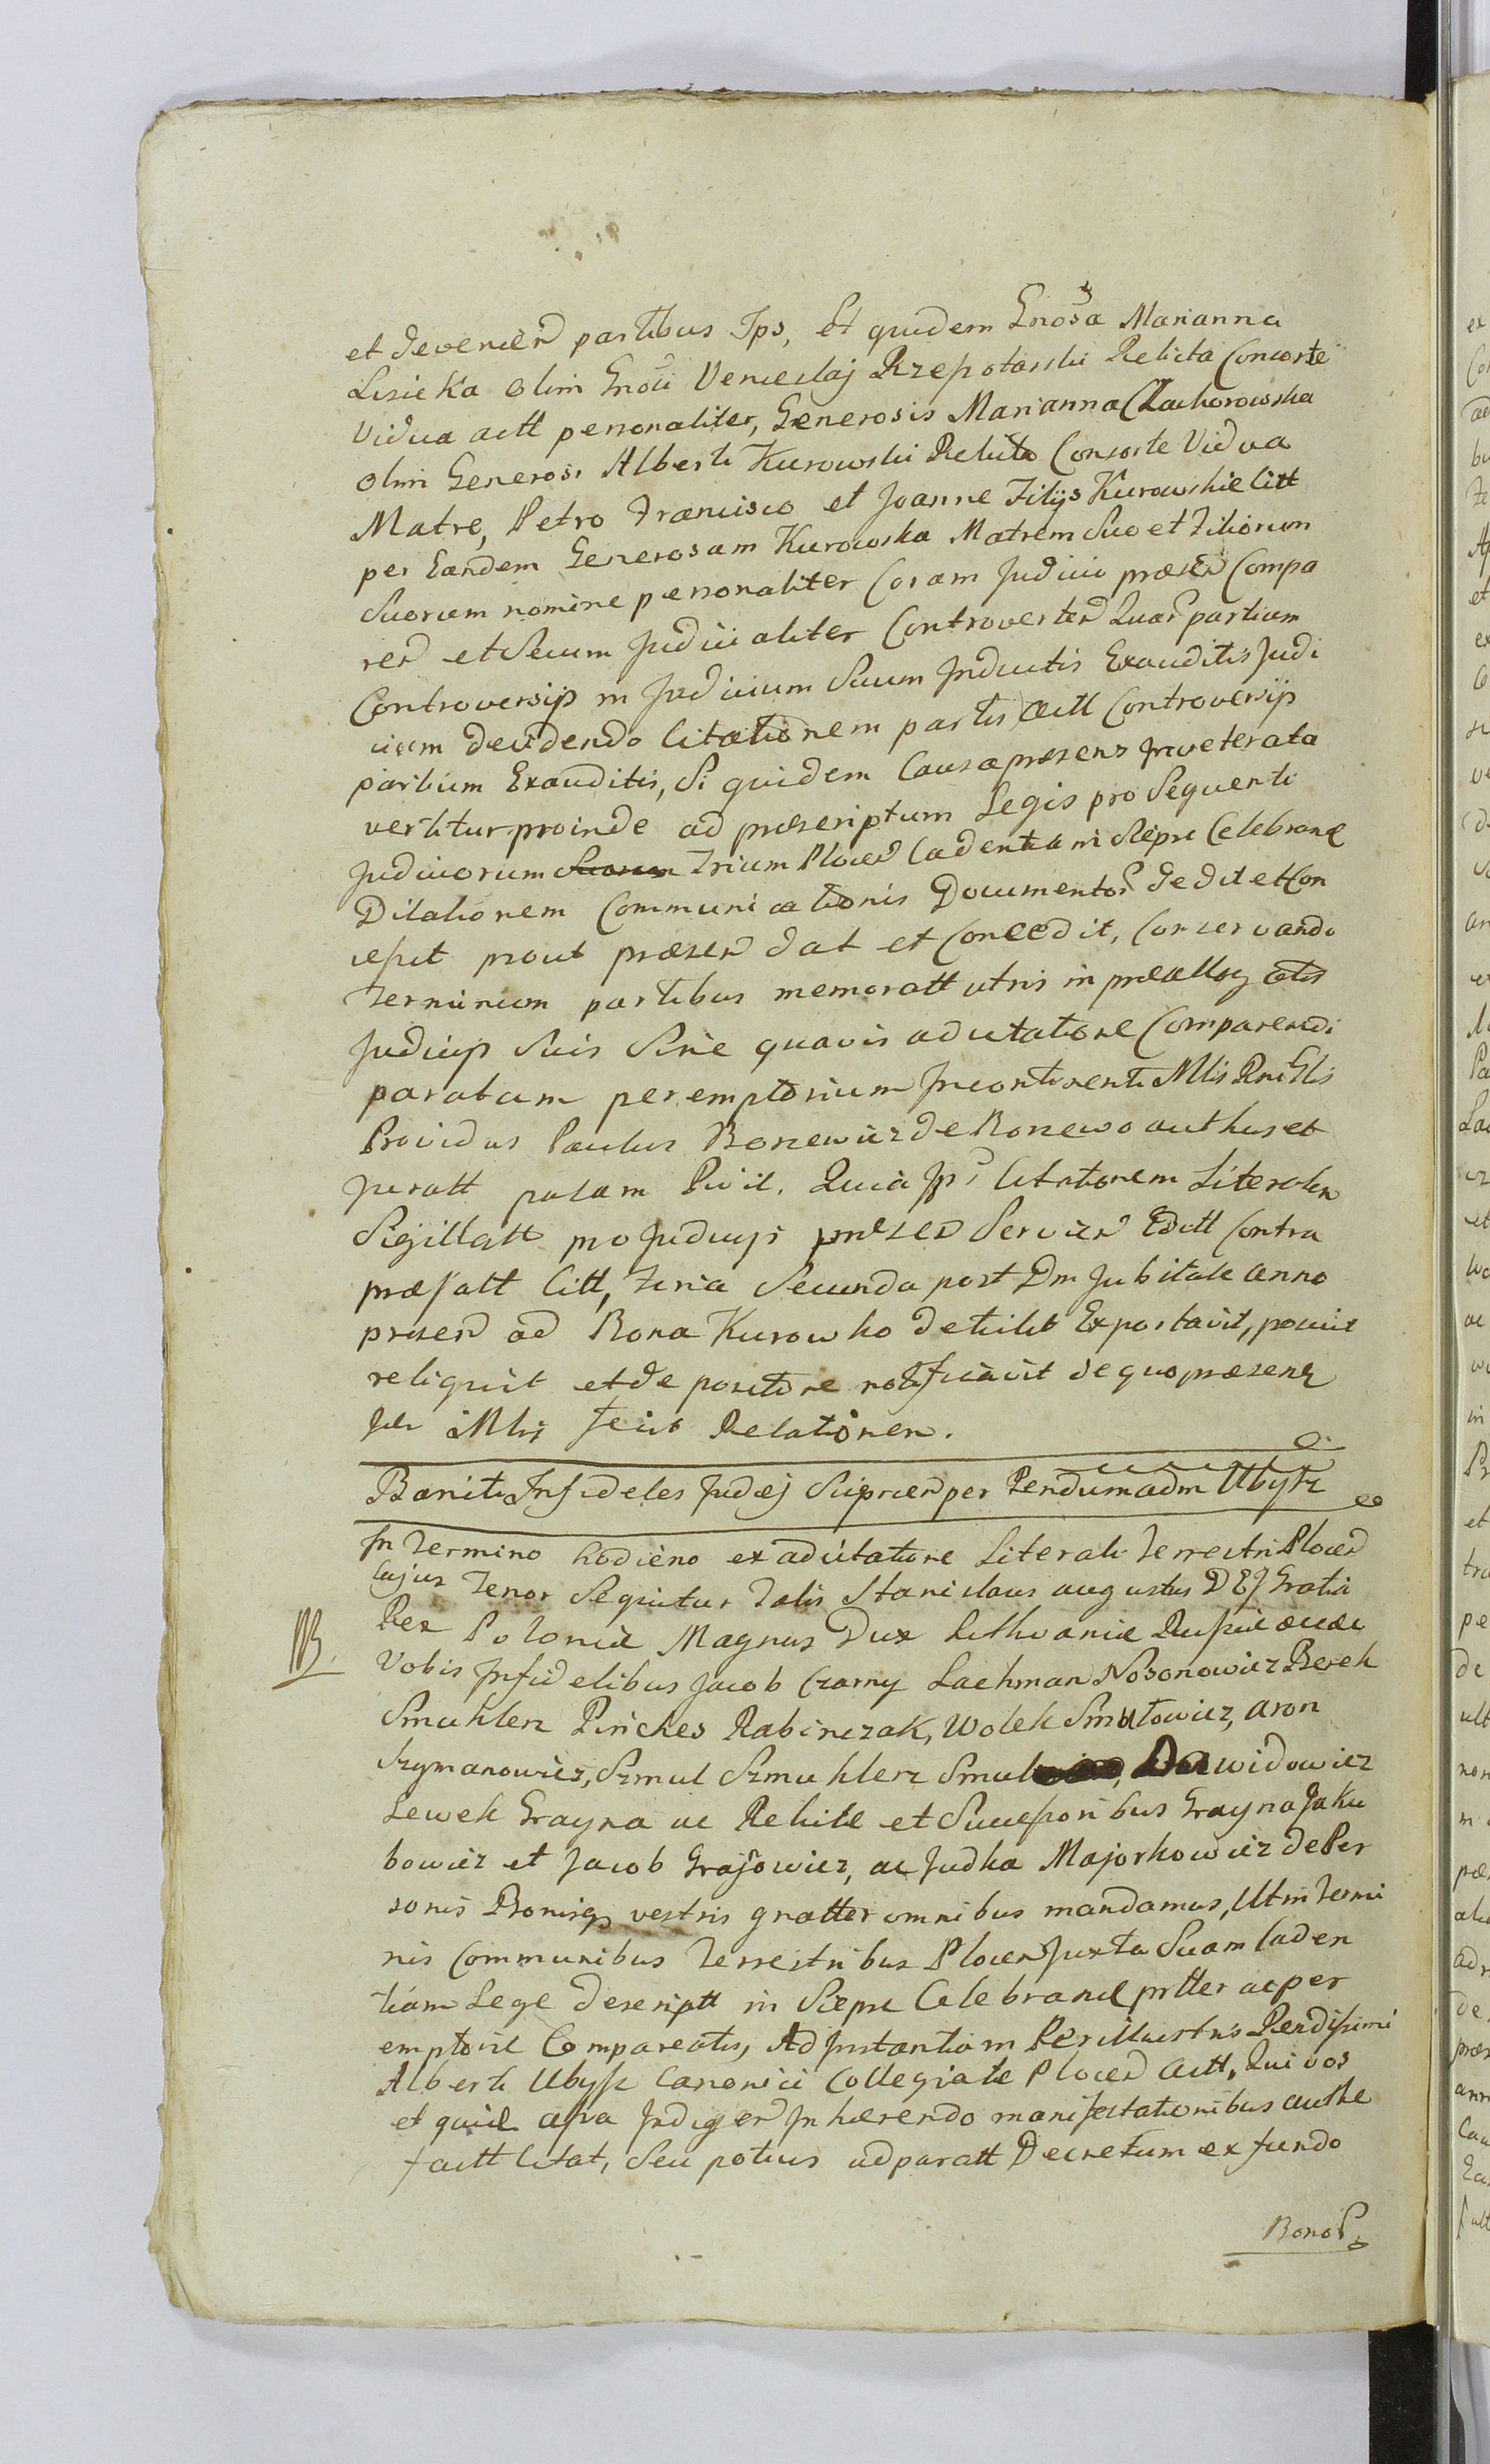 et devenien partibus Ips, et quidem Gnosa Marianna
Lisicka olim Gnosi Venceslaj Rzepotarski Relicta Consorte
Vidua actt personaliter, Generosis Marianna Chachorowska
olim Generosi Alberti Kurowski Relicta Consorte Vidua
Matre, Petro Francisco et Joanne Filijs Kurowskie Citt
per Eandem Generosam Kurowska Matrem Suo et Filiorum
Suorum nomine personaliter Coram Judicio præsen Compa
ren et Secum Judicialiter Controverten Quar partium
Controversijs in Judicium Suum Inductis Exauditis Judi
cium decidendo Citationem partis actt Controversijs
partium Exauditis, Si quidem Causa præsens Inveterata
vertitur proinde ad præscriptum Legis pro Sequenti
Judiciorum Suorum Trium Plocen Cadentia in Siepre Celebran
Dilationem Communicationis Documentor dedit et Con
cessit prout præsen dat et Concedit, Conservando
Terminum partibus memoratt utris in præallegatis
Judicijs Suis Sine quavis adcitatione Comparendi
paratum peremptorium Incontinenti Mlis Rni Glis
Providus Paulus Bonewicz de Bonewo authus et
Juratt palam Rcit. Quia Ips Citationem Literalem
Sigillatt pro Judicijs præsen Servien Editt Contra
præfatt Citt, Feria Secunda post Dm Jubilate anno
præsen ad Bona Kurowko detulit Exportavit, posuit
reliquit et de positione notificavit de quo præsens
Jee Mlis fecit Relationem.
Baniti Infideles Judæj Sieprcen per Rendum adm Ubysz
In Termino hodierno ex adcitatione Literali Terrestri Plocen
Cujus Tenor Sequitur Talis Stanislaus augustus DEJ Gratia
Rex Poloniæ Magnus Dux Lithvaniæ Russiæ
NB.
Vobis Infidelibus Jacob Czarny Lachman Nosonowicz Berek
Smuklerz Pinches Rabinczak, Wolek Smulowicz, aron
Szymanowicz, Szmul Szmuklerz Smul Dawidowicz
Lewek Grayna ac Relictæ et Successoribus Grayna Jaku
bowicz et Jacob Grajowicz, ac Judka Majorkowicz de Per
sonis Bonisq vestris gnatter omnibus mandamus, Ut in Termi
nis Communibus Terrestribus Plocen Juxta Suam Caden
tiam Lege descriptt in Siepre Celebran prtter ac per
emptorie Compareatis, Ad Instantiam Perillustris Rendissimi
Alberti Ubysz Canonici Collegiatæ Plocen actt, Qui vos
et quidem Inhærendo manifestationibus authe
factt Citat, Seu potius ad paratt Decretum ex fundo
Bonor